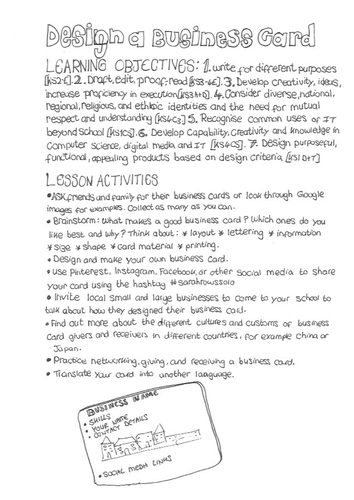 Design a Business Card
LEARNING OBJECTIVES: 1. write for different purposes
[KS2-E] 2. Draft, edit, proof-read [KS3-4E]. 3. Develop creativity, ideas,
increase proficiency in execution [KS3A+D] 4. Consider diverse, national,
regional, religious, and ethnic identities and the need for mutual
respect and understanding [KS4C3] 5. Recognise common uses of IT
beyond School [KS1CS]. 6. Develop Capability, Creativity and knowledge in
Computer science, digital media, and IT [KS4CS]. 7. Design purposeful,
functional, appealing products based on design criteria [KS1D+T]
LESSON ACTIVITIES
• Ask friends and family for their business cards or look through Google
images for examples. Collect as many as you can.
• Brainstorm: What makes a good business card? Which ones do you
like best and why? Think about: * layout * lettering * information
* size * shape * card material * printing.
• Design and make your own business card.
• Use Pinterest, Instagram, Facebook, or other Social media to share
your card using the hashtag #sarahrowssolo
• Invite local small and large businesses to come to your school to
talk about how they designed their business card.
• Find out more about the different cultures and customs of business
card givers and receivers in different countries, for example China or
Japan.
• Practice networking, giving, and receiving a business card.
• Translate your card into another language.
BUSINESS NAME
• SKILLS
• YOUR NAME
• CONTACT DETAILS
• SOCIAL MEDIA LINKS